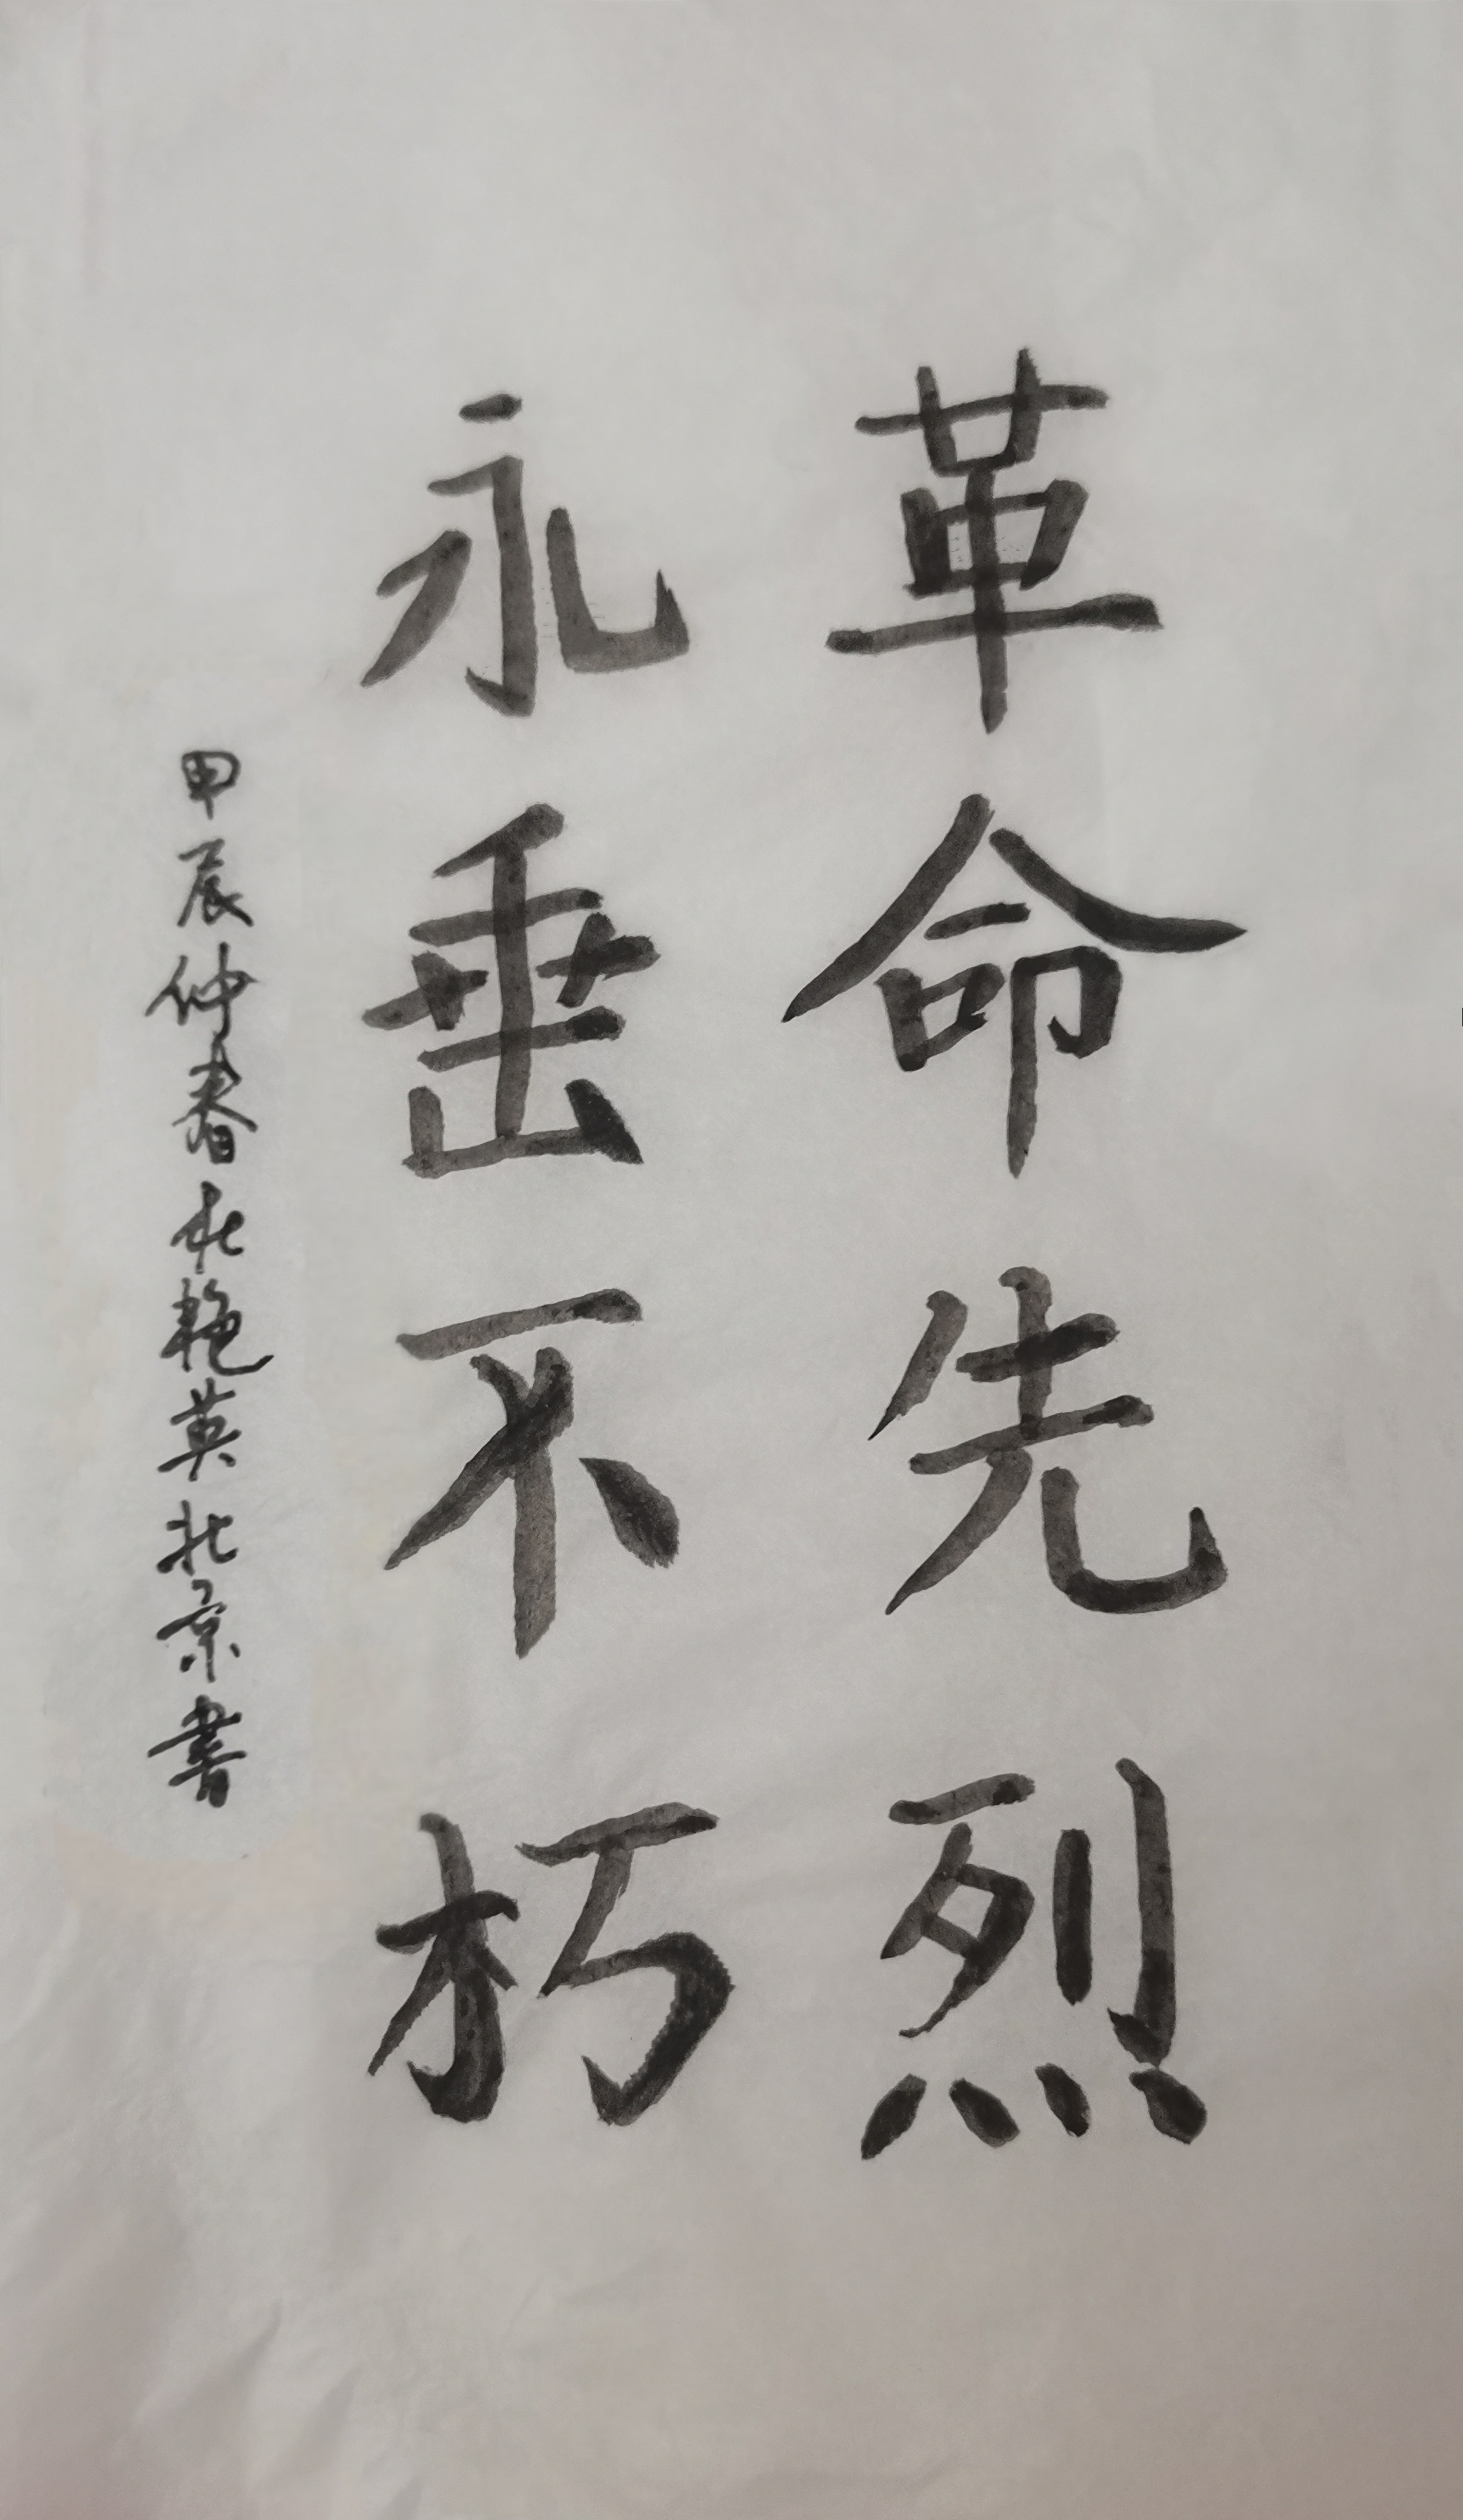 革命先烈
永垂不朽
甲辰仲春杜艳英北京書